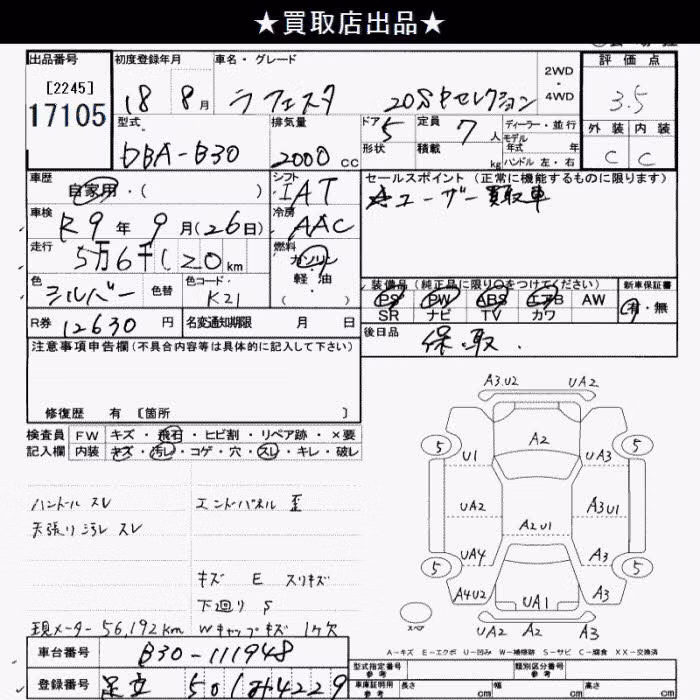 ★買取店出品★
出品番号 [2245] 17105
初度登録年月 18 8月
車名・グレード ラフェスタ 20S Pセレクション
2WD・4WD
評価点 3.5
外装 内装
C C
型式 DBA-B30
排気量 2000cc
ドア 5
形状
定員 7人
積載 kg
ディーラー・並行
モデル年式 年
ハンドル 左・右
車歴 自家用・( )
シフト IAT
セールスポイント (正常に機能するものに限ります)
☆ユーザー買取車
車検 R9年9月(26日)
冷房 AAC
走行 5万6千120km
燃料 ガソリン 軽油 ( )
色 シルバー 色替
色コード K21
装備品(純正品に限り○をつけてください)
PS PW ABS エアB AW
SR ナビ TV カワ
新車保証書 有・無
R券 12630円
名変通知期限 月 日
後日品 保.取.
注意事項申告欄(不具合内容等は具体的に記入して下さい)
修復歴 有 [箇所 ]
検査員記入欄
FW キズ・飛石・ヒビ割・リペア跡・×要
内装 キズ・汚レ・コゲ・穴・スレ・キレ・破レ
ハンドル スレ
天張り汚レ スレ
エンドパネル 歪
キズ E スリキズ
下廻り S
現メーター56,192km Wキャップキズ 1ケ欠
A3.U2 UA2
5 A2 5
U1 UA3
UA2 A3U1
A2U1
UA4 A3
5 5
A4U2 UA1 A3
スペア
UA2 A2 A3
A-キズ E-エクボ U-凹み W-補修跡 S-サビ C-腐食 XX-交換済
車台番号 B30-111948
登録番号 足立 501 み 4229
型式指定番号 参考
類別区分番号 参考
車庫証明用 参考 長さ cm 幅 cm 高さ cm